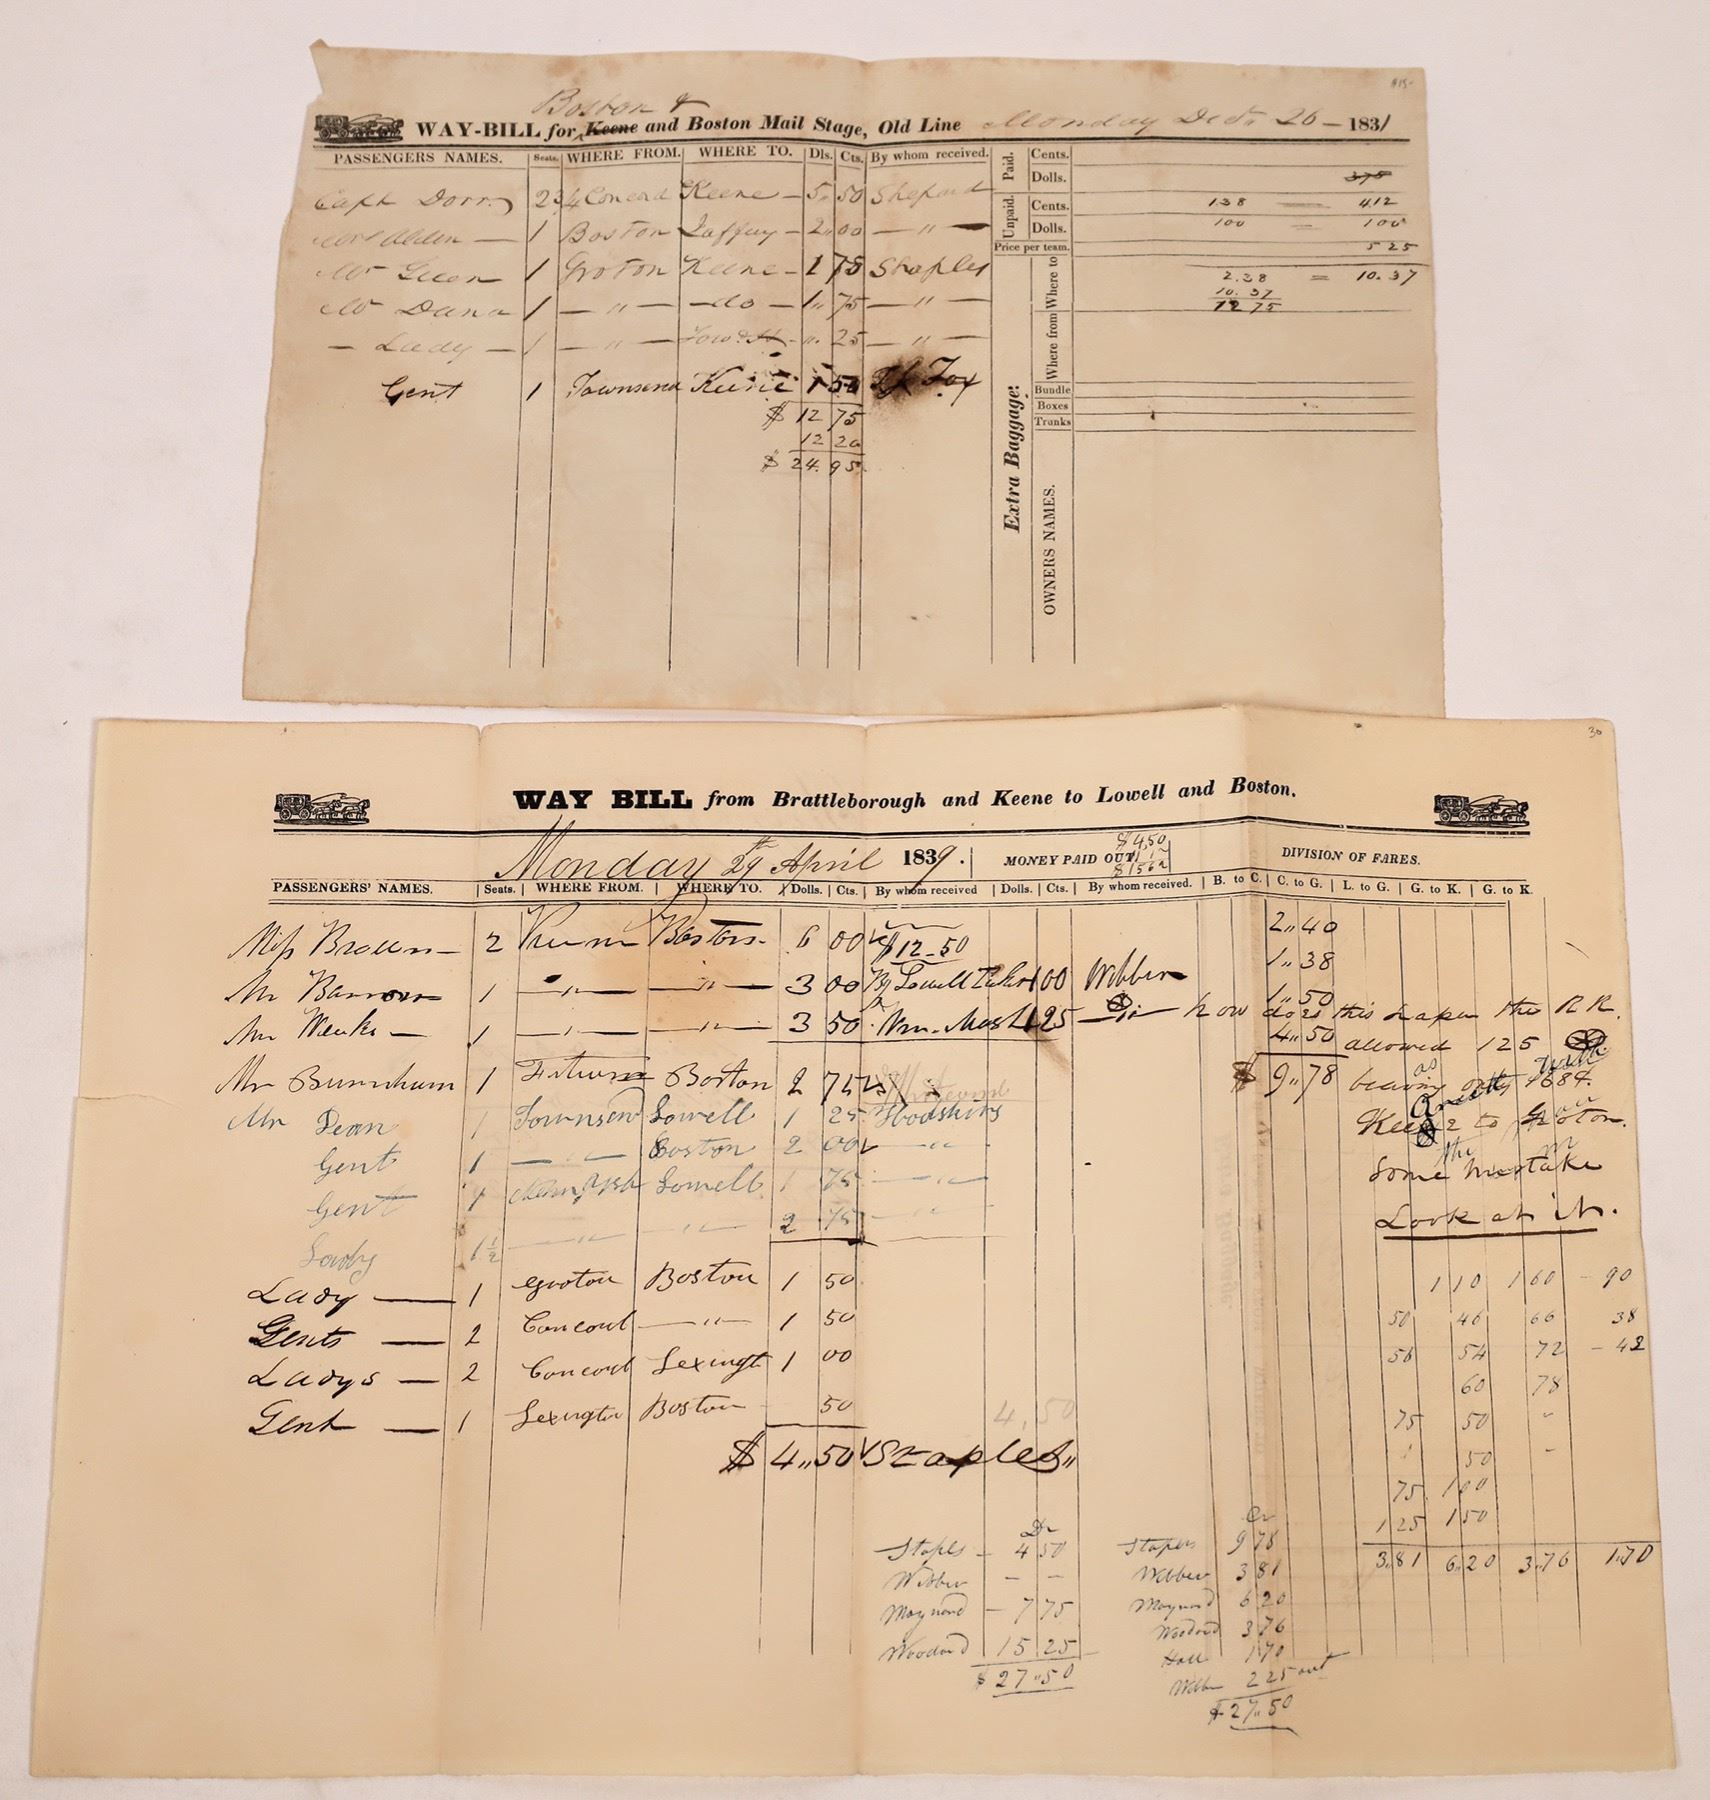 $15-
Boston &
WAY-BILL for Keene and Boston Mail Stage, Old Line Monday Dec. 26 - 1831
PASSENGERS NAMES. Seats. WHERE FROM. WHERE TO. Dls. Cts. By whom received. Paid. Cents. Dolls. 375
Capt Dorr 2 3/4 Concord Keene - 5 50 Shepard Unpaid. Cents. 138 = 412
Mrs Alden - 1 Boston Jaffrey - 2 00 - " - Dolls. 100 = 100
Price per team. 5 25
Mr Green 1 Groton Keene - 1 75 Staples Where to 2.38 = 10.37
10.37
Mr Dana 1 - " - - do - 1 75 - " - 12 75
- Lady - 1 - " - " 25 - " - Where from
Gent 1 Townsend Keene 1 50 Fox Bundle
$ 12 75 Boxes
12 20 Trunks
$ 24.95
Extra Baggage: OWNERS NAMES.
30
WAY BILL from Brattleborough and Keene to Lowell and Boston.
Monday 29th April 1839. MONEY PAID OUT $4,50 DIVISION OF FARES.
PASSENGERS' NAMES. Seats. WHERE FROM. WHERE TO. Dolls. Cts. By whom received Dolls. Cts. By whom received. B. to C. C. to G. L. to G. G. to K. G. to K.
Miss Brown - 2 Keene Boston. 6 00 $12-50 2,,40
1,,38
Mr 1 - " - - " - 3 00 By Lowell 1 00 Webber
1,,50
Mr Weeks - 1 - " - - " - 3 50 1 25 - " - how does this the RR.
4,,50 allowed 125
Mr Burnham 1 Boston 2 75 $ 9,,78
Mr Dean 1 Townsend Lowell 1 25 Hodskins Keene to Groton.
Gent 1 - " - Boston 2 00 - " - Some mistake
Gent 1 Lowell 1 75 - " - Look at it.
Lady 1 1/2 - " - - " - 2 75 - " -
Lady - 1 Groton Boston 1 50 1 10 1 60 - 90
Gents - 2 Concord - " - 1 50 50 46 66 38
Ladys - 2 Concord Lexingt 1 00 56 54 72 - 42
60 78
Gent - 1 Lexington Boston 50 4,50 75 50 -
$ 4,,50 Staples,, 50 -
75 100
Dr Cr 125 150
Staples - 4 50 Staples 9 78 3.81 6,,20 3,,76 1.70
Webber - - Webber 3 81
Maynard - 7 75 Maynard 6 20
Woodard 15 25 Woodard 3 76
$ 27.50 Hall 1 70
Webber 2 25 out
$ 27.50